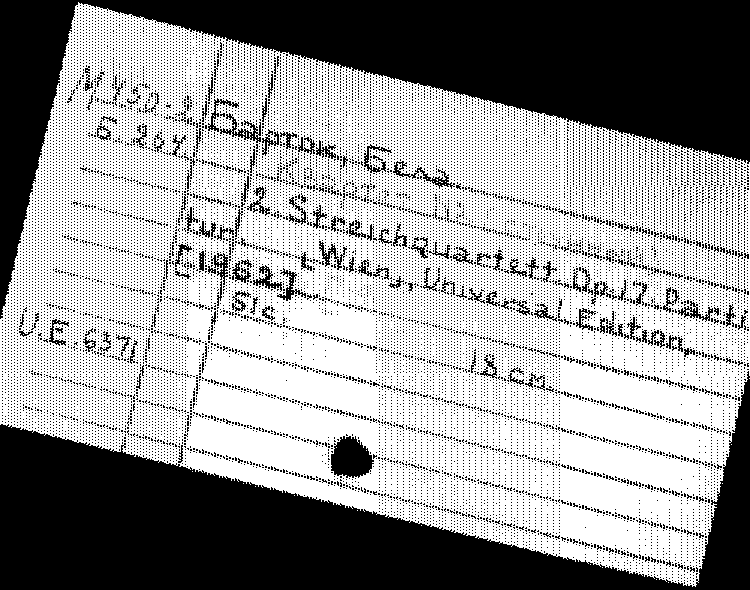 М450-2 Барток, Бела
Б 264
2 Streichquartett Op.17 Parti
tur. [Wien], Universal Edition,
[1962].
51с. 18 cm.
U.E. 6371